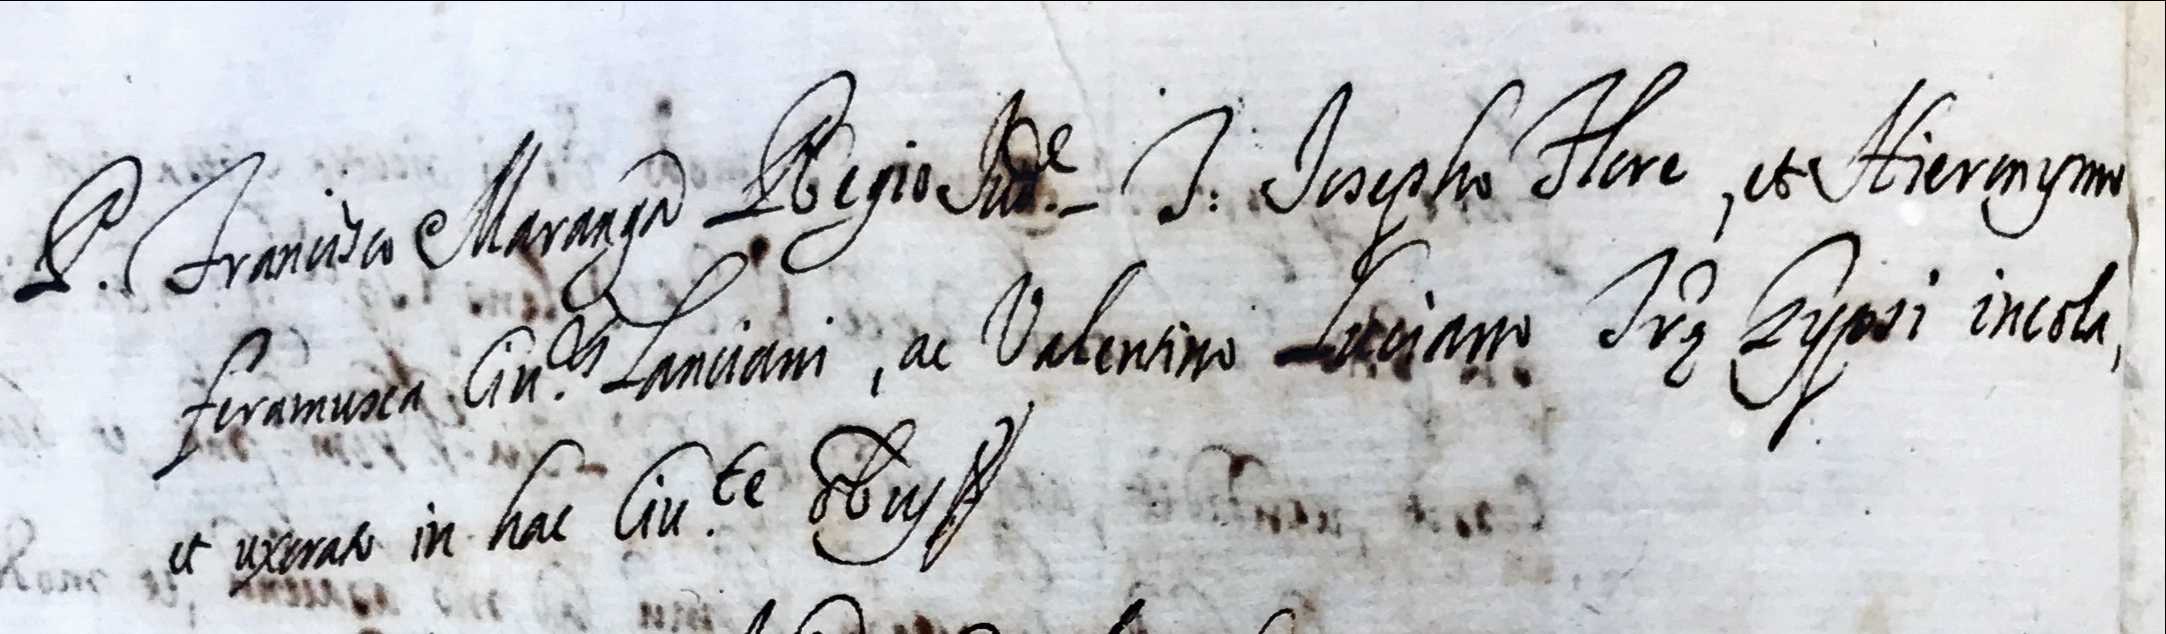 P. Francisco Maranga Regio Jud.e T: Josepho Flore, et Hieronymo
feramusca Ciu.ts Lanciani, ac Valentino Luciano Trę Gypsi incola,
et uxorato in hac Ciu.te